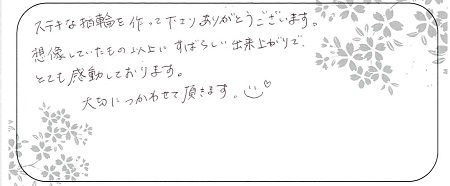 ステキな指輪を作って下さりありがとうございます。
想像していたもの以上にすばらしい出来上がりで、
とても感動しております。
大切につかわせて頂きます。